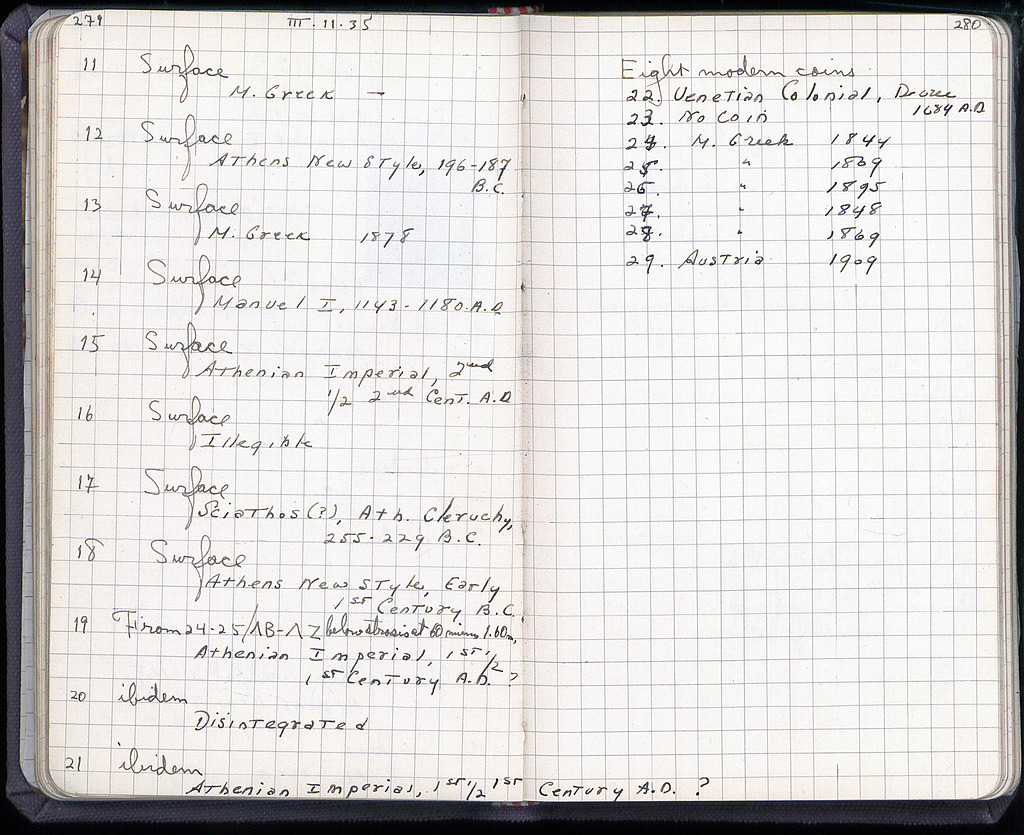 279
III·11·35
11 Surface
M. Greek —
12 Surface
Athens New Style, 196-187
B.C.
13 Surface
M. Greek 1878
14 Surface
Manuel I, 1143-1180 A.D.
15 Surface
Athenian Imperial, 2nd
1/2 2nd Cent. A.D.
16 Surface
Illegible
17 Surface
Sciathos (?), Ath. Cleruchy,
255-229 B.C.
18 Surface
Athens New Style, Early
1st Century B.C.
19 From 24-25/ΛΒ-ΛΖ below strosis at 60 minus 1.60m,
Athenian Imperial, 1st 1/2
1st Century A.D. ?
20 ibidem
Disintegrated
21 ibidem
Athenian Imperial, 1st 1/2 1st Century A.D. ?
280
Eight modern coins
22. Venetian Colonial,
1684 A.D
23. No Coin
24. M. Greek 1844
25. " 1869
26. " 1895
27. " 1848
28. " 1869
29. Austria 1909